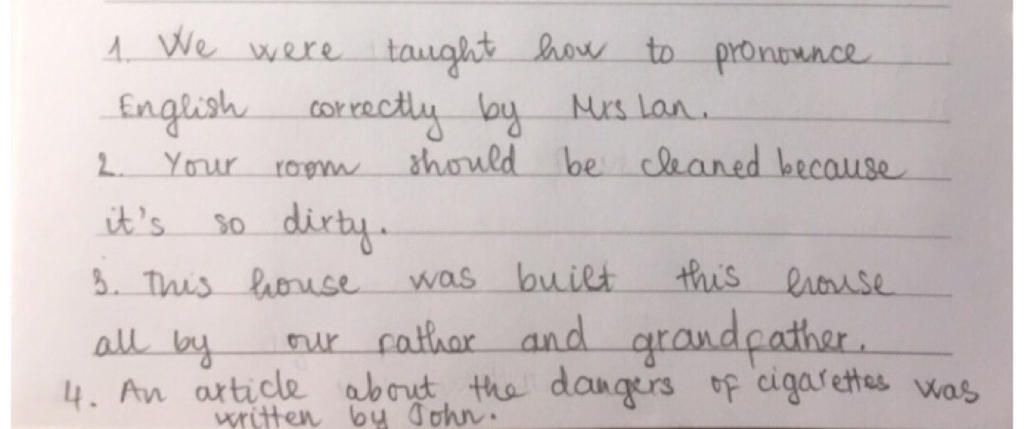 1. We were taught how to pronounce
English correctly by Mrs Lan.
2. Your room should be cleaned because
it's so dirty.
3. This house was built this house
all by our father and grandfather.
4. An article about the dangers of cigarettes was
written by John.